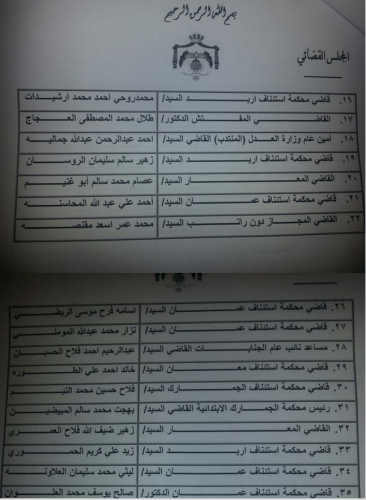 بسم الله الرحمن الرحيم
المجلس القضائي
١٦. قاضي محكمة استئناف اربد السيد/ محمدروحي احمد محمد ارشيدات
١٧. القاضي المفتش الدكتور/ طلال محمد المصطفى العجاج
١٨. أمين عام وزارة العدل (المنتدب) القاضي السيد/ احمد عبدالرحمن عبدالله جماليه
١٩. قاضي محكمة استئناف اربد السيد/ زهير سالم سليمان الروسان
٢٠. القاضي المعار السيد/ عصام محمد سالم أبو غنيم
٢١. قاضي محكمة استئناف عمان السيد/ أحمد علي عبد الله المحاسنه
٢٢. القاضي المجاز دون راتب السيد/ محمد عمر اسعد مقنصه
٢٦. قاضي محكمة استئناف عمان السيد/ اسامه فرح موسى الربضي
٢٧. قاضي محكمة استئناف عمان السيد/ نزار محمد عبدالله المومني
٢٨. مساعد نائب عام الجنايات القاضي السيد/ عبدالرحيم احمد فلاح الحسبان
٢٩. قاضي محكمة استئناف معان السيد/ خالد احمد علي الطوره
٣٠. قاضي محكمة استئناف الجمارك السيد/ فلاح حسين محمد التيم
٣١. رئيس محكمة الجمارك الابتدائية القاضي السيد/ بهجت محمد سالم المبيضين
٣٢. القاضي المعار السيد/ زهير ضيف الله فلاح العمري
٣٣. قاضي محكمة استئناف اربد السيد/ زيد علي كريم الحموري
٣٤. قاضي محكمة استئناف عمان السيد/ ليثي محمد سليمان العلاونه
٣٥. قاضي محكمة استئناف عمان الدكتور/ صالح يوسف محمد العلوان